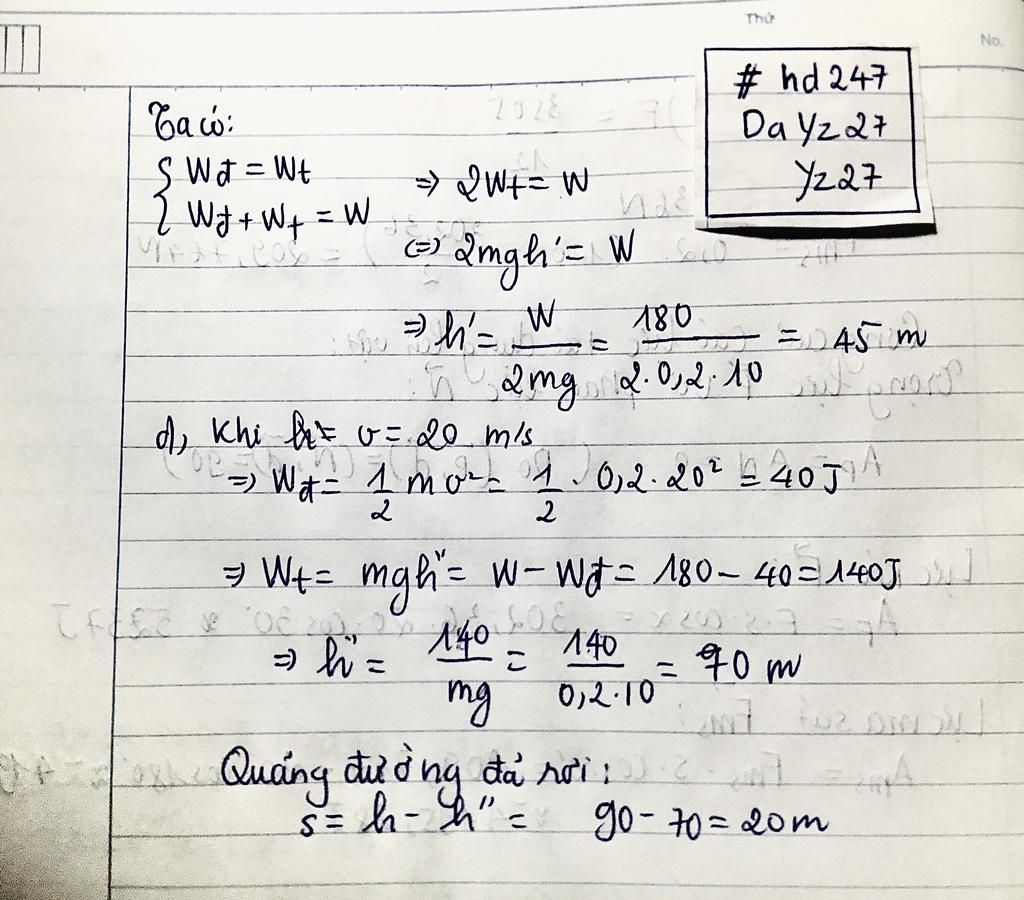 Thứ
No.
# hd247
DaYz27
Yz27
Ta có:
{ Wđ = Wt
{ Wđ + Wt = W
⇒ 2Wt = W
⇔ 2mgh' = W
⇒ h' = W/2mg = 180/2.0,2.10 = 45 m
d, Khi v = 20 m/s
⇒ Wđ = 1/2 mv² = 1/2 . 0,2.20² = 40J
⇒ Wt = mgh" = W - Wđ = 180 - 40 = 140J
⇒ h" = 140/mg = 140/0,2.10 = 70 m
Quãng đường đã rơi:
s = h - h" = 90 - 70 = 20m